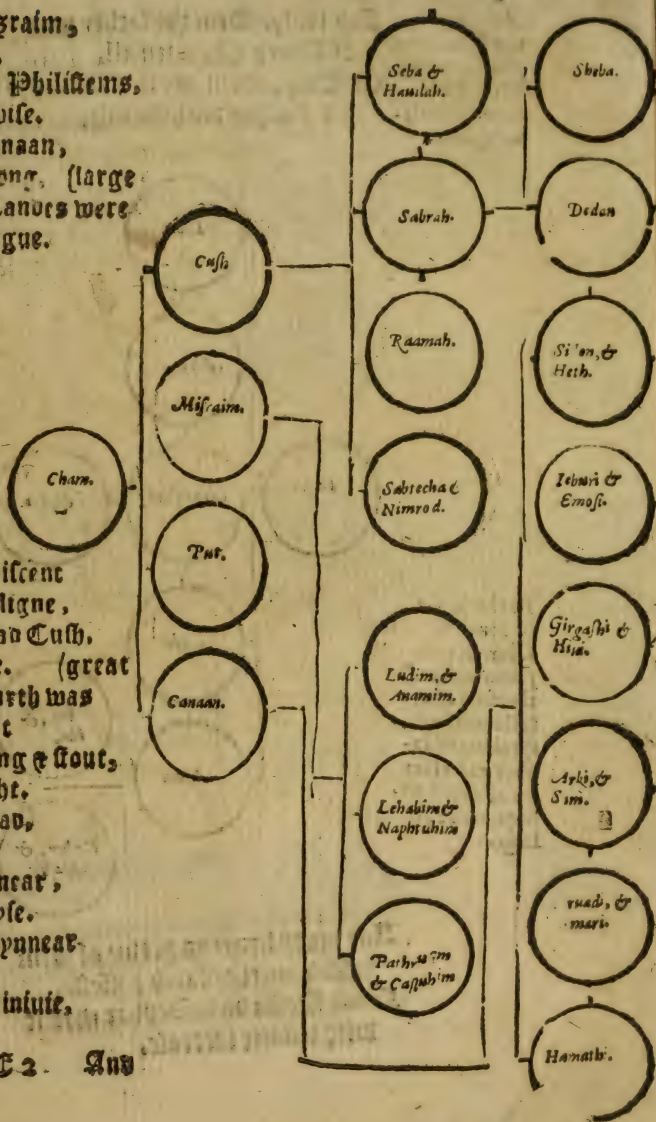 graim,
Philistems,
oise.
naan,
ong, (large
Landes were
gue.
iscent
ligne,
nd Cush.
e. (great
arth was
t
ng & stout,
ht.
ad,
near,
yse.
ynnear
iniuie,
E 2. And
Cham.
Cush
Misraim.
Put.
Canaan.
Seba &
Hauilah.
Sabrah.
Raamah.
Sabtecha &
Nimrod.
Ludim, &
Anamim.
Lehabim &
Naphtuhim
Pathrusim
& Casluhim
Sheba.
Dedan
Sidon, &
Heth.
Iebusi &
Emosi.
Girgashi &
Hiui.
Arki, &
Sini.
ruadi, &
mari.
Hamathi.